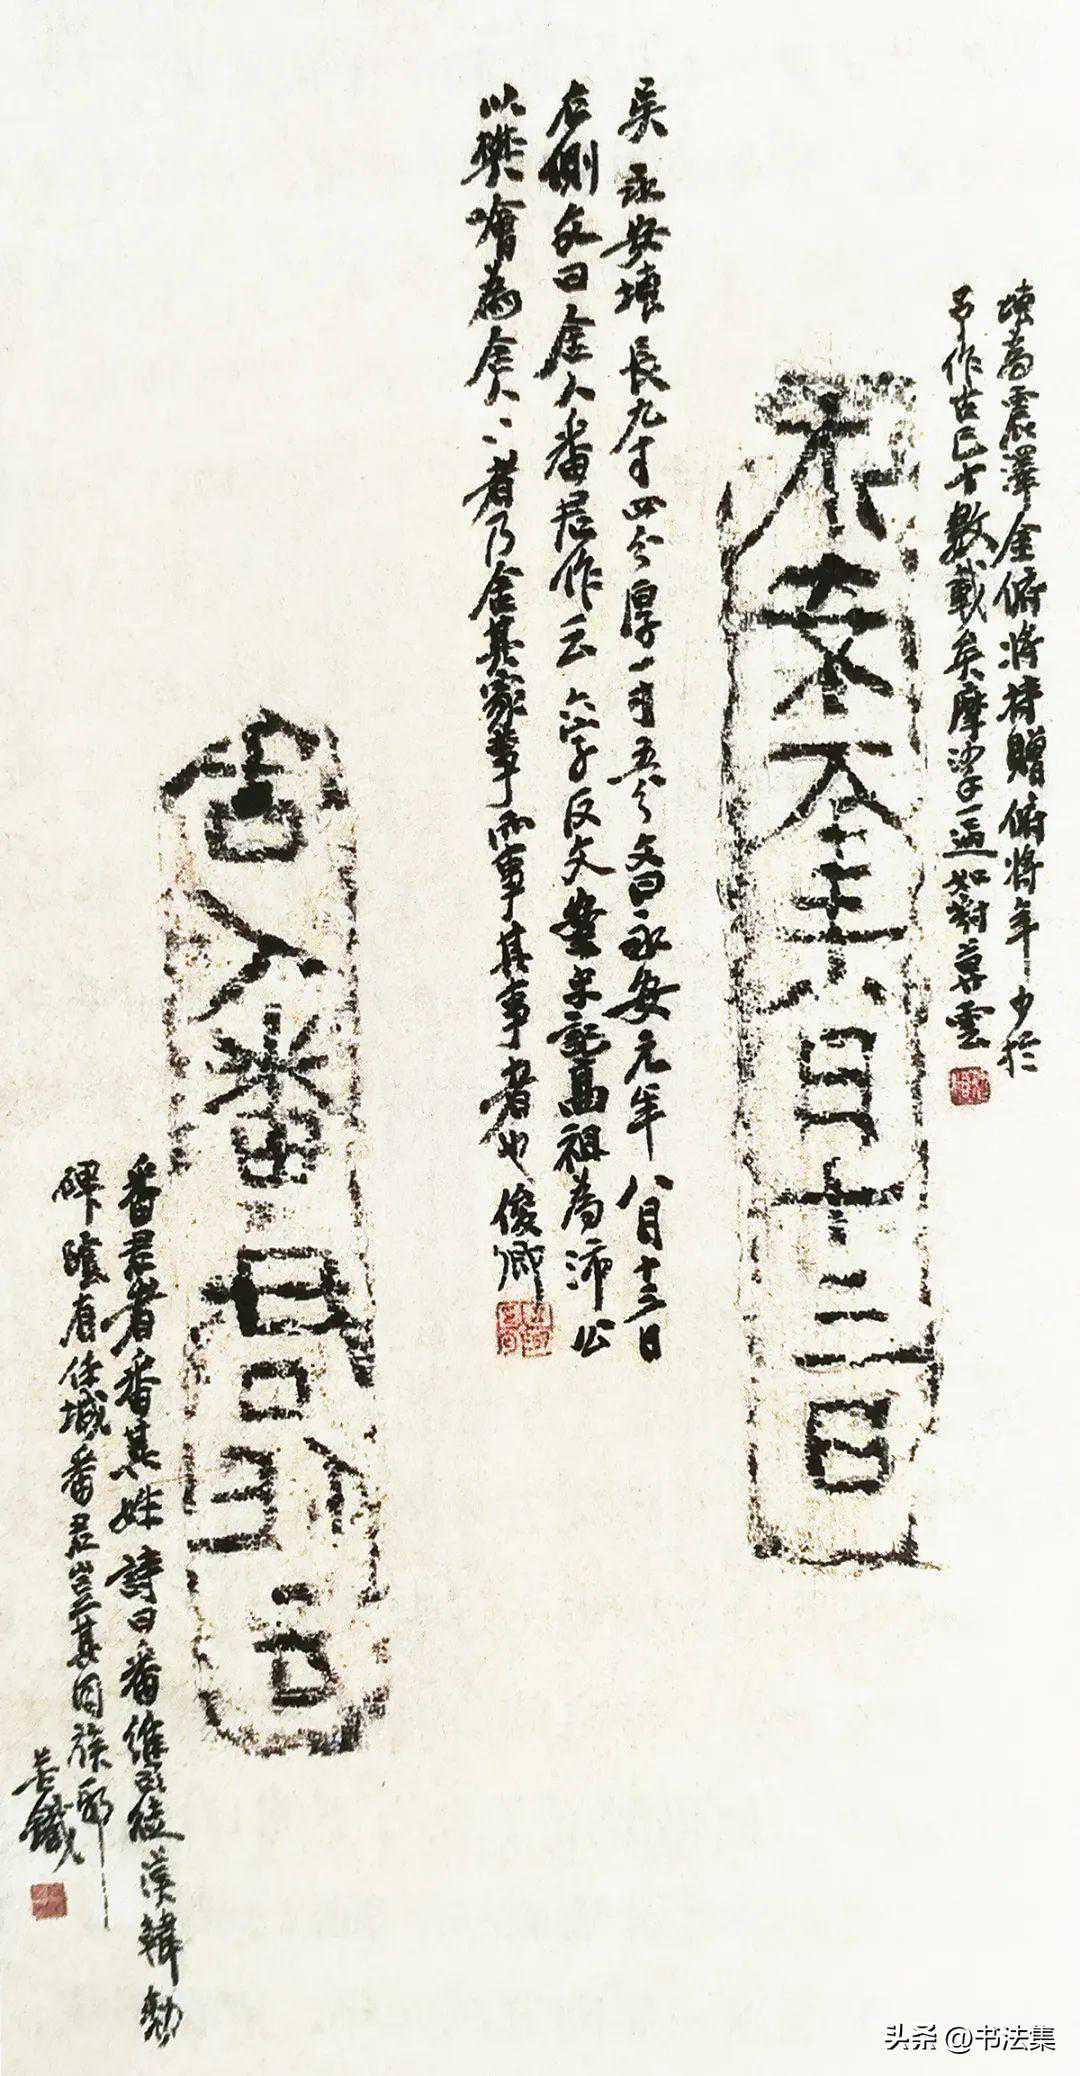 塼為震澤金俯將持贈俯將年少於
予作古已十數載矣摩挲一過如對暮雲
永安元年八月十三日
吳永安塼長九寸四分厚一寸五分文曰永安元年八月十三日
右側文曰舍人番君作云六字反文案史記高祖為沛公
以樊噲為舍人〻者乃舍其家事而事其事者也俊卿
舍人番君作云
番君者番其姓詩曰番維司徒漢韓勑
碑陰有徐城番君豈其同族耶
苦鐵
头条 @书法集